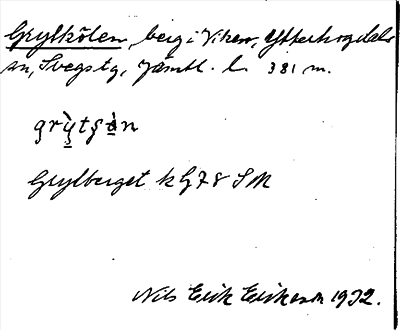 Grylkölen, berg i Viken, Ytterhogdals
sn, Svegs tg, Jämtl. l. 381 m.
grỳtʂàn
Grylberget k G78 SM
Nils Erik Eriksson 1932.